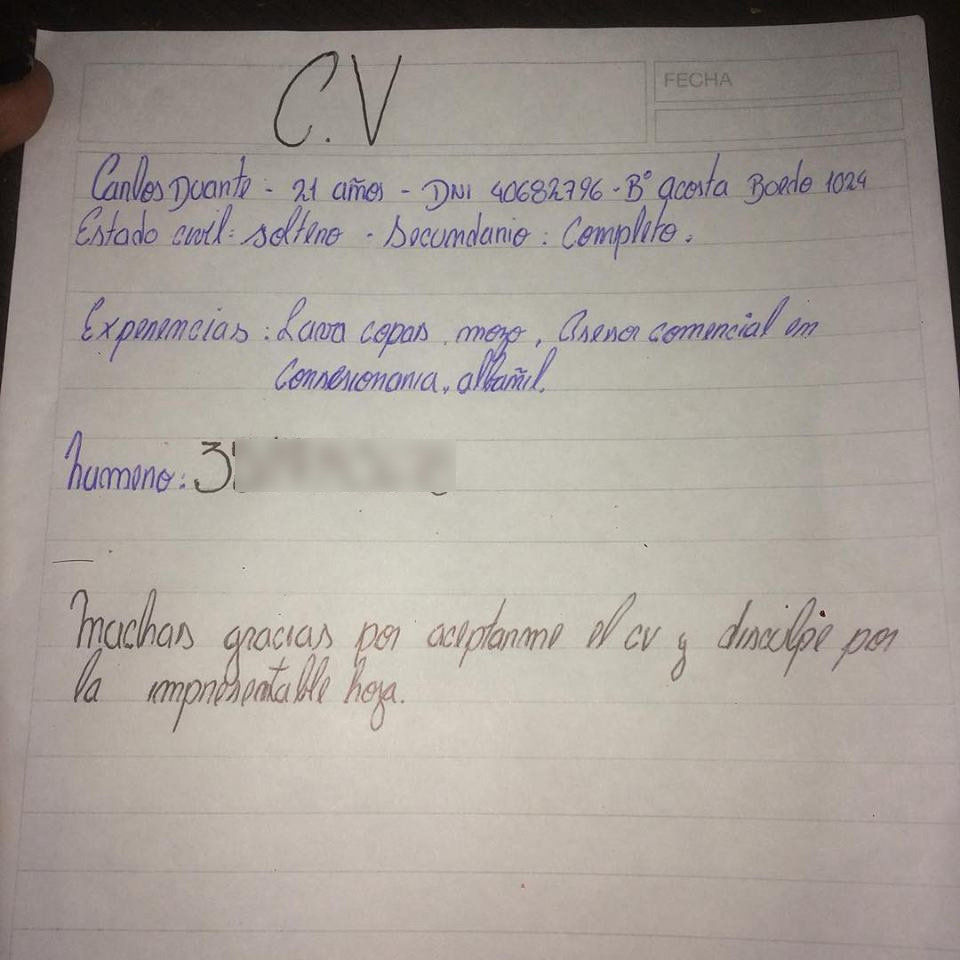 C.V
FECHA
Carlos Duarte - 21 años - DNI 40682796 - B° acosta Boedo 1024
Estado civil: soltero - Secundario: Completo.
Experiencias: Lava copas, mozo, Asesor comercial en
Consesionaria, albañil.
Numero: 3
Muchas gracias por aceptarme el cv y disculpe por
la impresentable hoja.